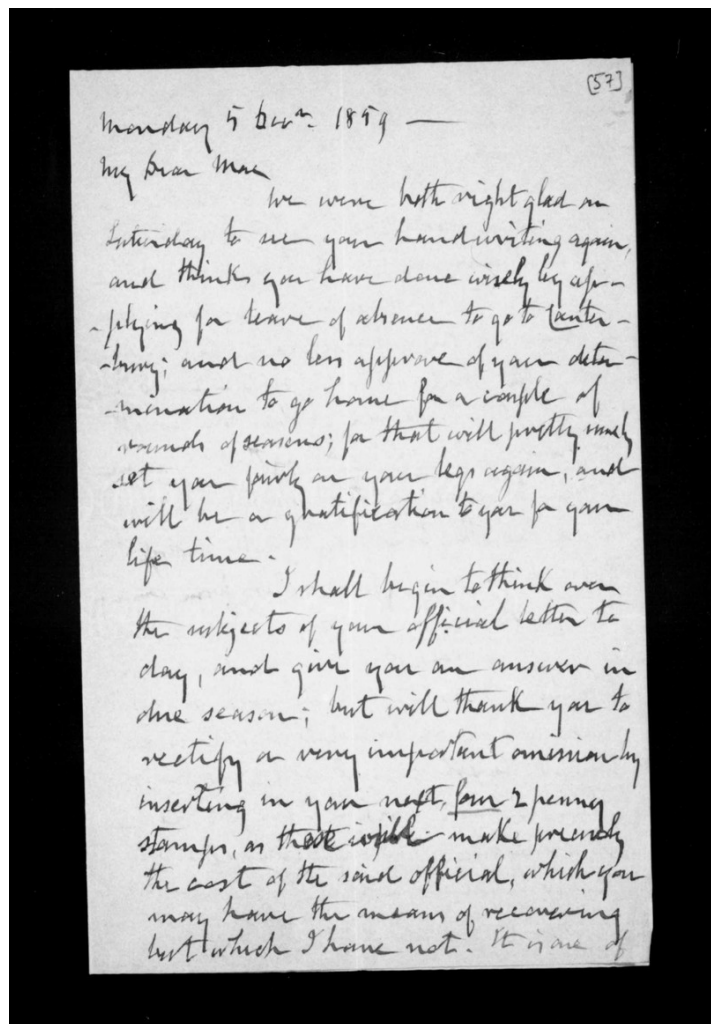 [57]
Monday 5 Decr. 1859 —
My Dear Mac
We were both right glad on
Saturday to see your handwriting again,
and thinks you have done wisely by ap-
-plying for leave of absence to go to Canter-
-bury; and no less approve of your deter-
-mination to go home for a couple of
rounds of seasons; for that will pretty surely
set you firmly on your legs again, and
will be a gratification to you for your
life time.
I shall begin to think over
the subjects of your official letter to
day, and give you an answer in
due season; but will thank you to
rectify a very important omission by
inserting in your next, four 2 penny
stamps, as these will make precisely
the cost of the said official, which you
may have the means of recovering
but which I have not. It is one of